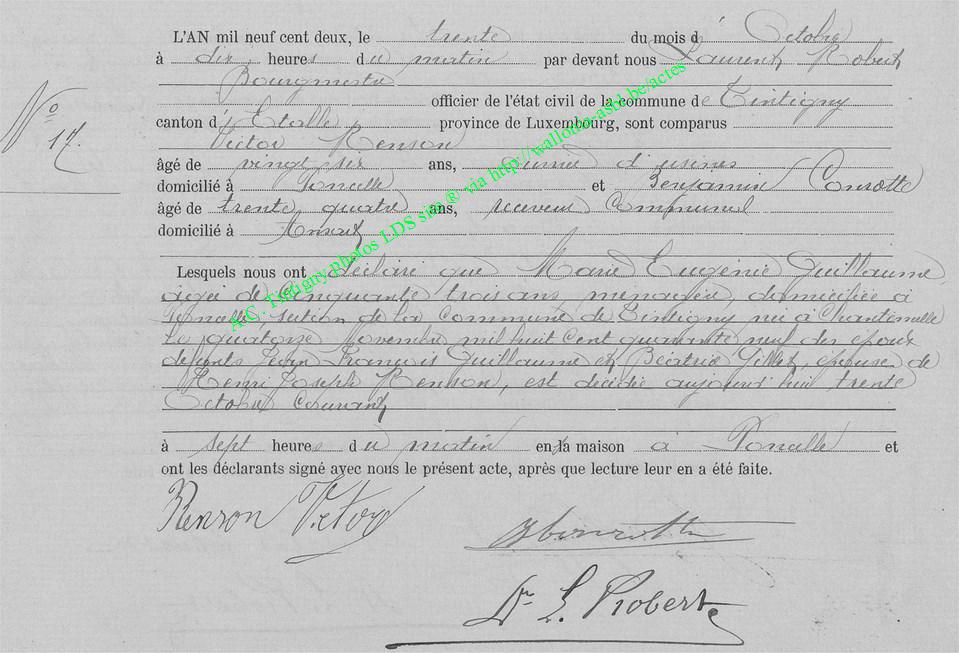 L'AN mil neuf cent deux, le trente du mois d' Octobre
à dix heures du matin par devant nous Laurent Robert
Bourgmestre
officier de l'état civil de la commune de Tintigny
canton d' Etalle province de Luxembourg, sont comparus
Victor Renson
No 17.
âgé de vingt six ans, d'usines
domicilié à Poncelle et Benjamin
âgé de trente quatre ans, receveur Communal
domicilié à Ansart
Lesquels nous ont déclaré que Marie Eugénie Guillaume
agée de cinquante trois ans, ménagère, domiciliée à
Poncelle, section de la Commune de Tintigny née à Chantemelle
le quatorze Novembre mil huit cent quarante neuf des époux
défunts Jean Francois Guillaume et Béatrice Gillet, épouse de
Henri Joseph Renson, est décédée aujourd'hui trente
Octobre courant
à sept heures du matin en la maison à Poncelle et
ont les déclarants signé avec nous le présent acte, après que lecture leur en a été faite.
Renson Victor
Dr L. Robert
A.C. Tintigny photos LDS site ® via http://wallonia-asbl.be/actes